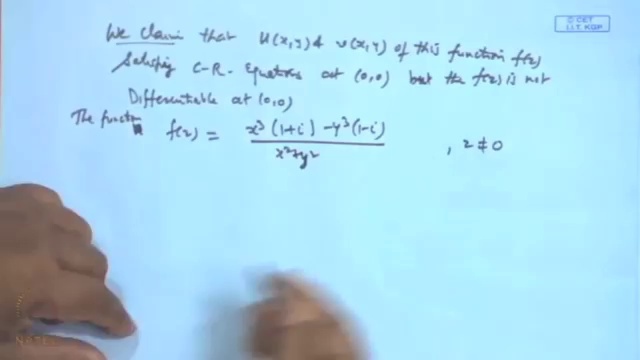 © CET
I.I.T. KGP
We claim that u(x,y) & v(x,y) of this function f(z)
Satisfing C-R- Equations at (0,0) but the f(z) is not
Differentiable at (0,0)
The function f(z) = x³(1+i) - y³(1-i) / x²+y² , z ≠ 0